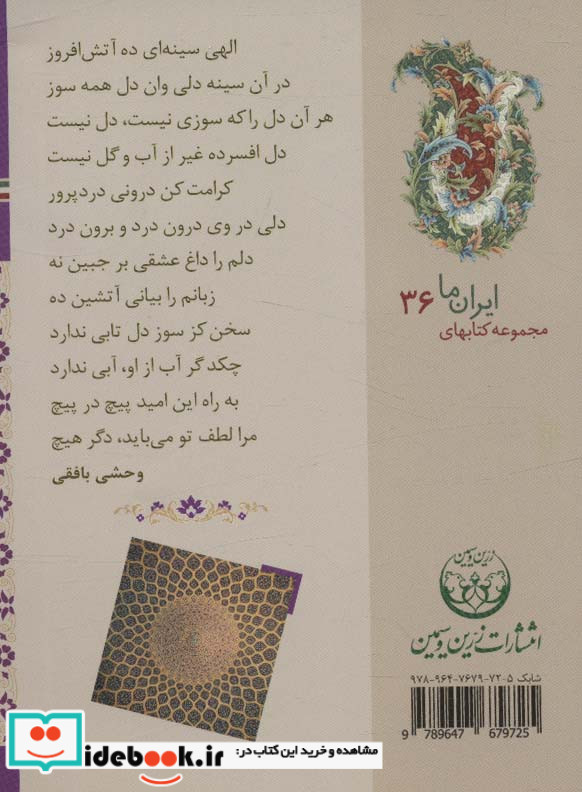 الهی سینه‌ای ده آتش‌افروز
در آن سینه دلی وان دل همه سوز
هر آن دل را که سوزی نیست، دل نیست
دل افسرده غیر از آب و گل نیست
کرامت کن درونی دردپرور
دلی در وی درون درد و برون درد
دلم را داغ عشقی بر جبین نه
زبانم را بیانی آتشین ده
سخن کز سوز دل تابی ندارد
چکد گر آب از او، آبی ندارد
به راه این امید پیچ در پیچ
مرا لطف تو می‌باید، دگر هیچ
وحشی بافقی
ایران ما ۳۶
مجموعه کتابهای
زرین و سیمین
انتشارات زرین و سیمین
شابک ۵-۷۲-۷۶۷۹-۹۶۴-۹۷۸
9 789647 679725
idebook.ir
مشاهده و خرید این کتاب در: